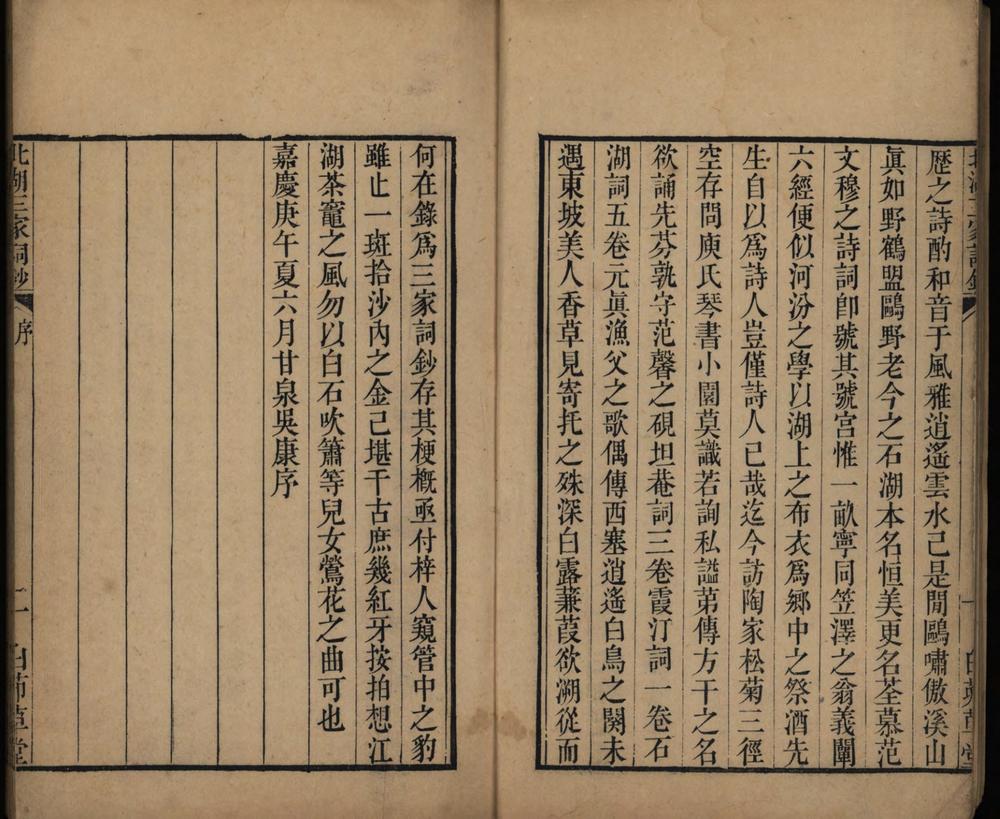 歷之詩酌和音于風雅逍遙雲水己是閒鷗嘯傲溪山
眞如野鶴盟鷗野老今之石湖本名恒美更名荃慕范
文穆之詩詞卽號其號宫惟一畝寧同笠澤之翁義闡
六經便似河汾之學以湖上之布衣爲鄉中之祭酒先
生自以爲詩人豈僅詩人已哉迄今訪陶家松菊三徑
空存問庾氏琴書小園莫識若詢私謚苐傳方干之名
欲誦先芬孰守范馨之硯坦菴詞三卷霞汀詞一卷石
湖詞五卷元眞漁父之歌偶傳西塞逍遙白鳥之闋未
遇東坡美人香草見寄托之殊深白露蒹葭欲溯從而
何在錄爲三家詞鈔存其梗概亟付梓人窺管中之豹
雖止一斑拾沙內之金己堪千古庶幾紅牙按拍想江
湖茶竈之風勿以白石吹簫等兒女鶯花之曲可也
嘉慶庚午夏六月甘泉吳康序
北湖三家詞鈔 序 二 白茆草堂